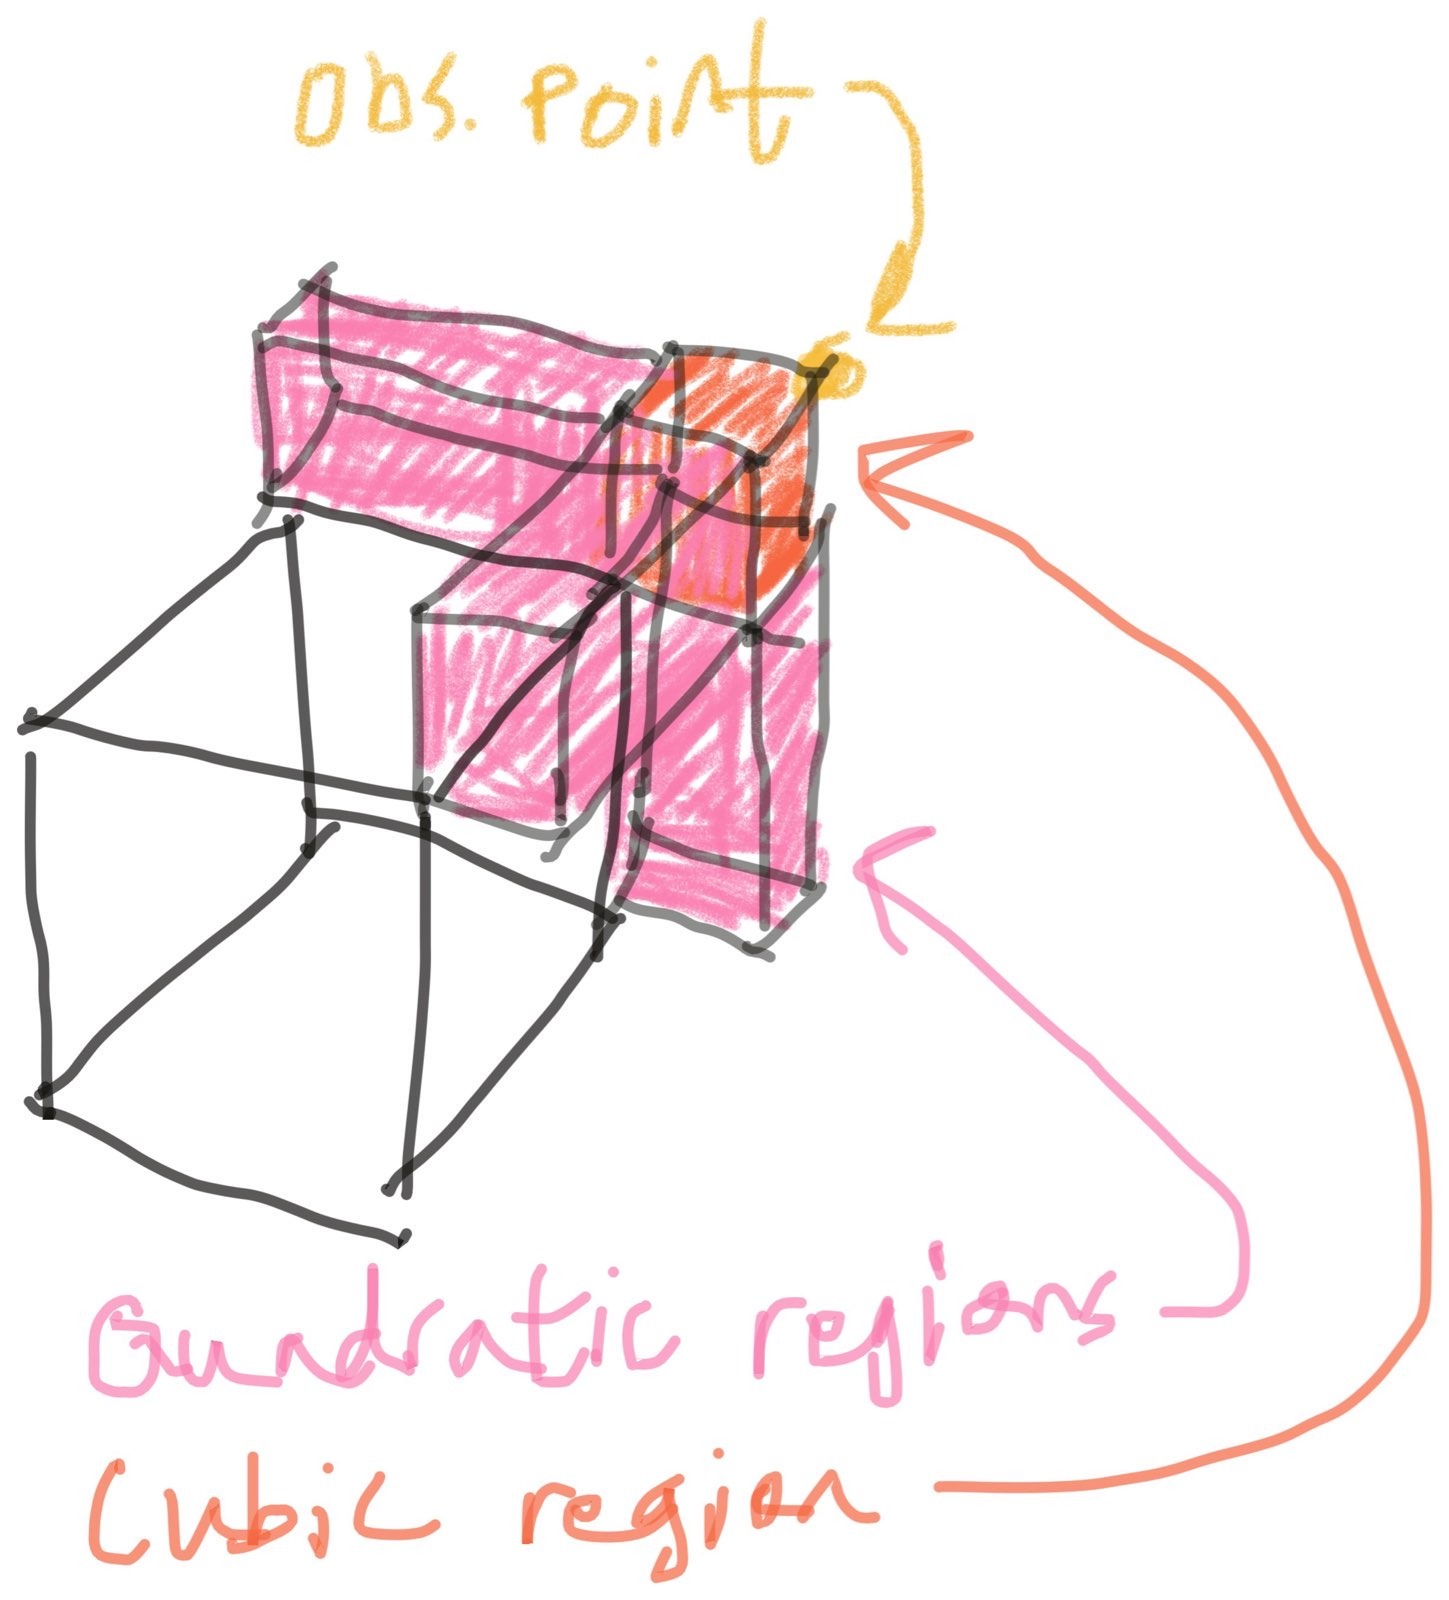 Obs. Point
Quadratic regions
Cubic region